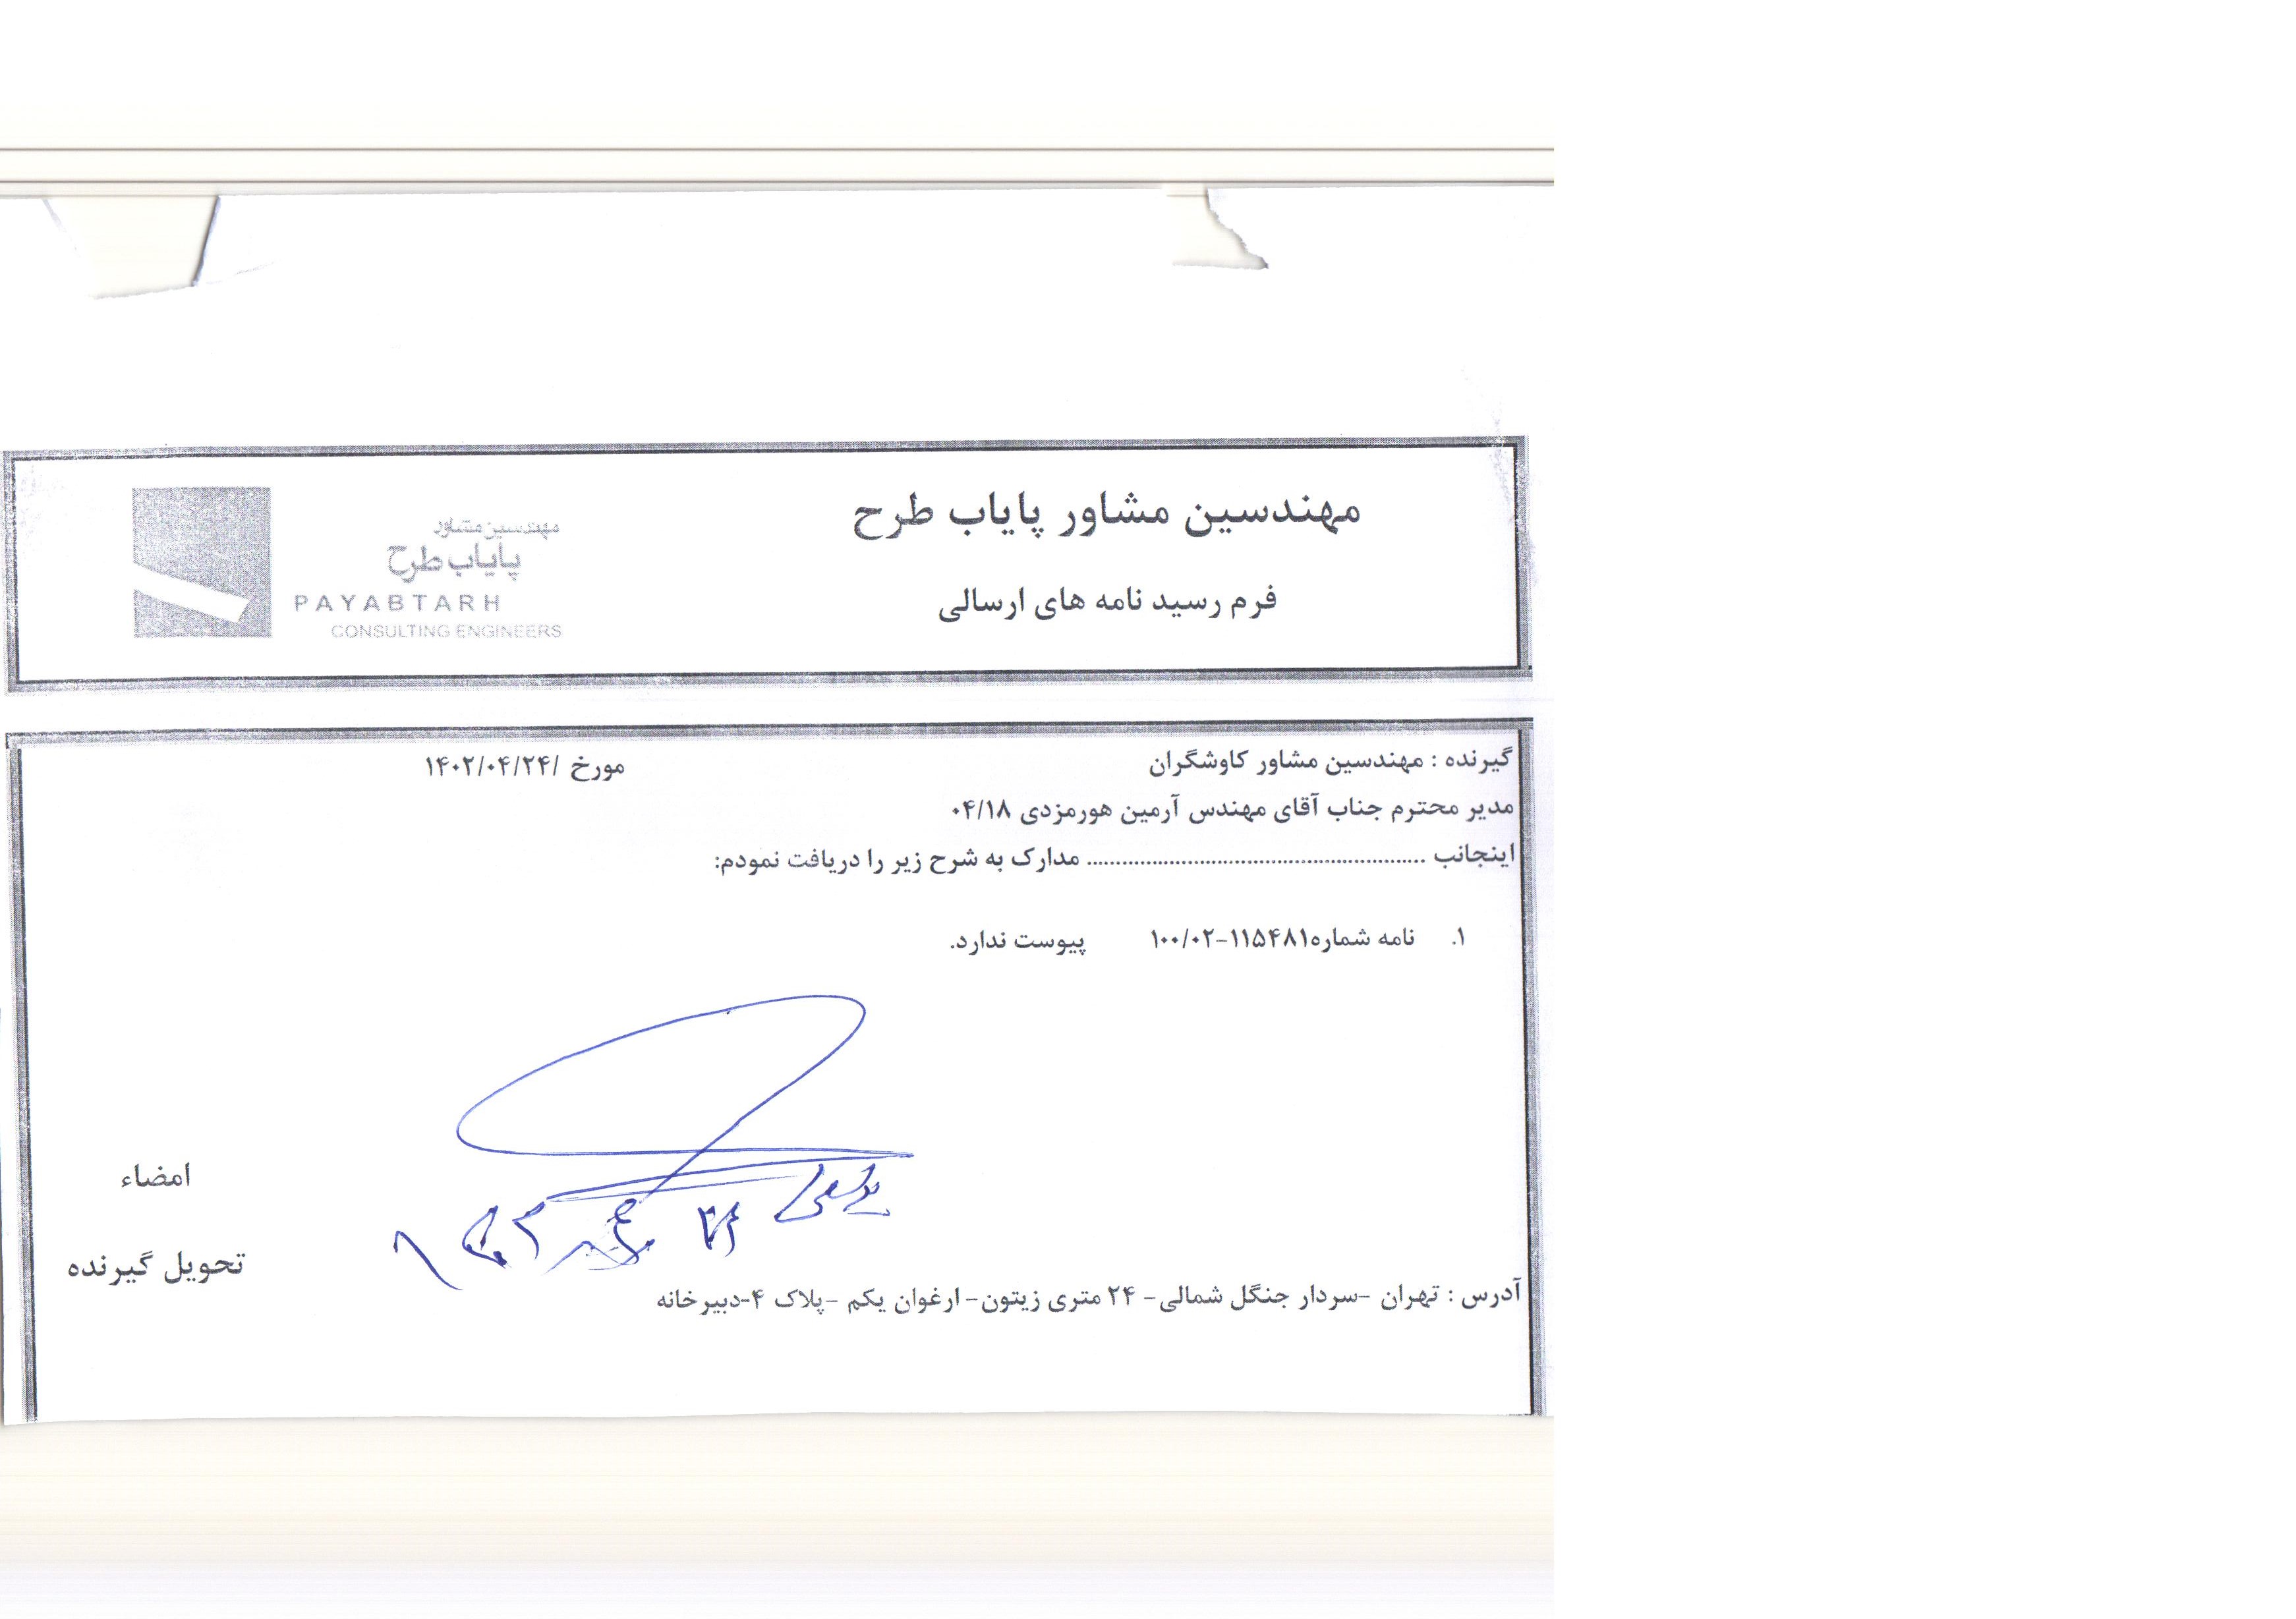 مهندسین مشاور پایاب طرح
فرم رسید نامه های ارسالی
مهندسین مشاور
پایاب طرح
PAYABTARH
CONSULTING ENGINEERS
گیرنده : مهندسین مشاور کاوشگران مورخ /۱۴۰۲/۰۴/۲۴
مدیر محترم جناب آقای مهندس آرمین هورمزدی ۰۴/۱۸
اینجانب .......................................................... مدارک به شرح زیر را دریافت نمودم:
۱. نامه شماره۱۱۵۴۸۱-۱۰۰/۰۲ پیوست ندارد.
امضاء
تحویل گیرنده
آدرس : تهران -سردار جنگل شمالی- ۲۴ متری زیتون- ارغوان یکم -پلاک ۴-دبیرخانه